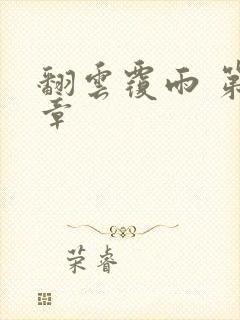 翻雲覆雨 第
章
荣睿